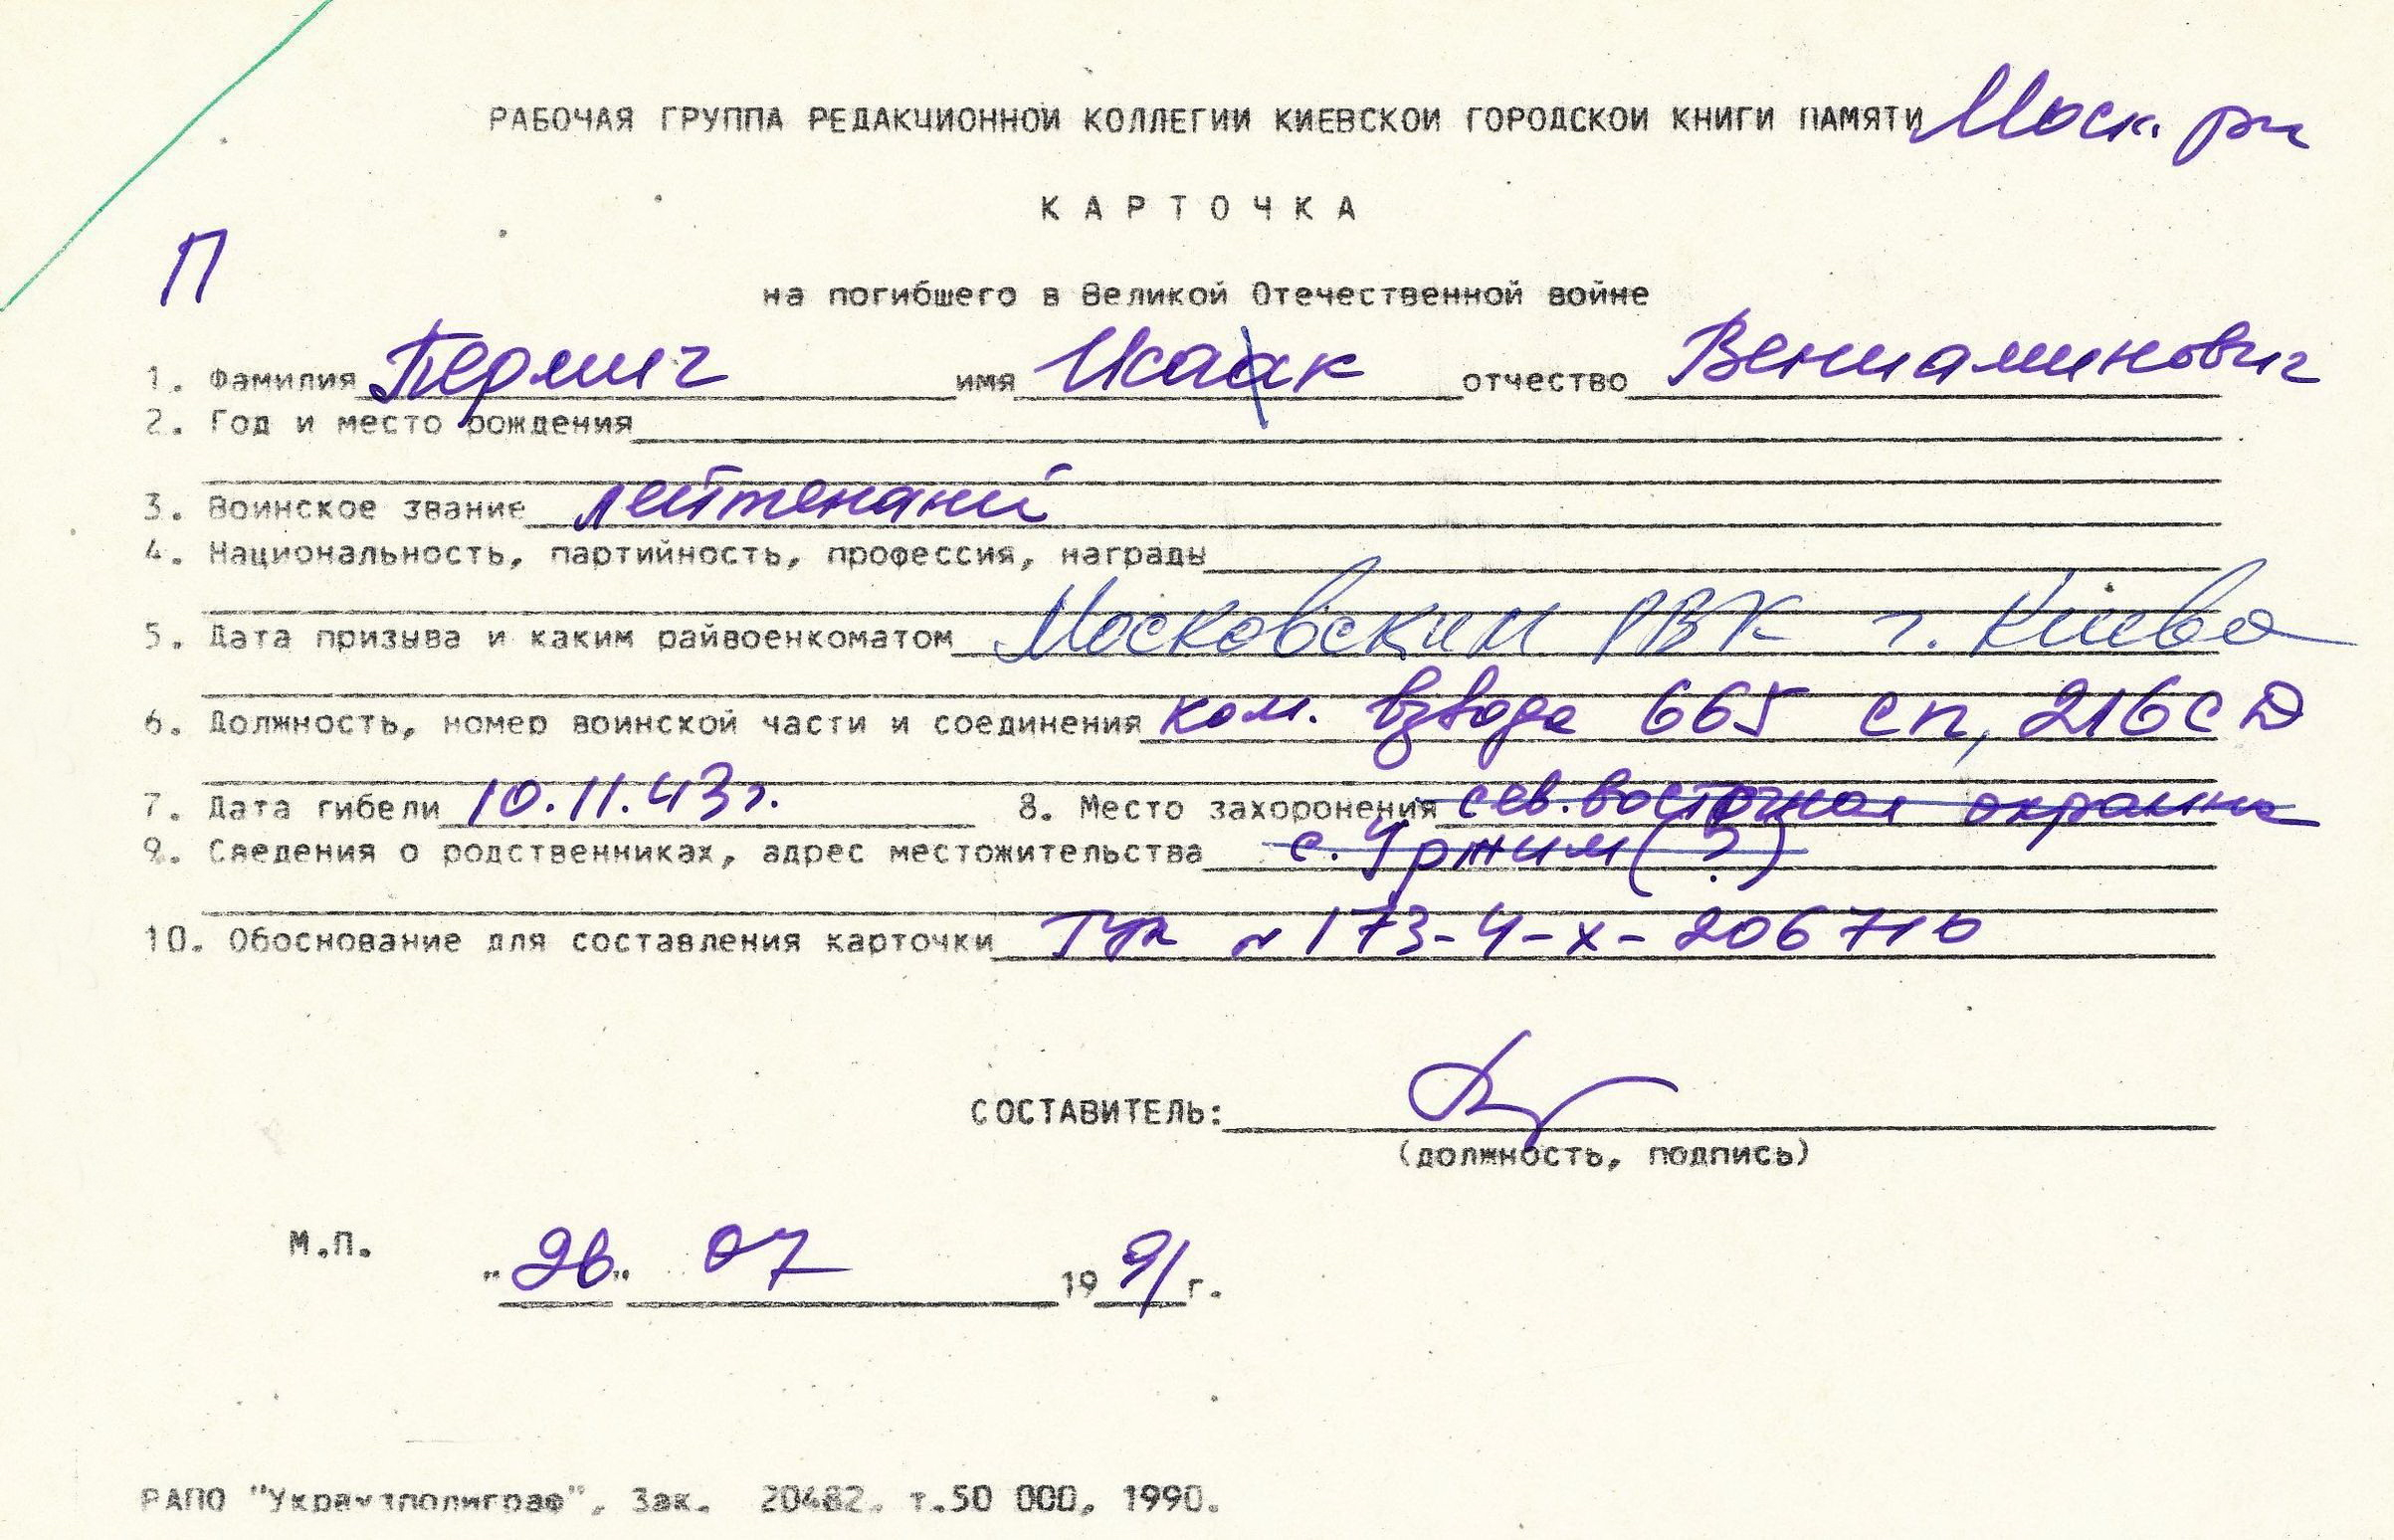 РАБОЧАЯ ГРУППА РЕДАКЦИОННОЙ КОЛЛЕГИИ КИЕВСКОЙ ГОРОДСКОЙ КНИГИ ПАМЯТИ Моск. рн
КАРТОЧКА
П
на погибшего в Великой Отечественной войне
1. Фамилия Пермич имя Исаак отчество Вениаминович
2. Год и место рождения
3. Воинское звание лейтенант
4. Национальность, партийность, профессия, награды
5. Дата призыва и каким райвоенкоматом Московским РВК г. Киева
6. Должность, номер воинской части и соединения ком. взвода 665 сп, 216 сD
7. Дата гибели 10.11.43г. 8. Место захоронения сев.восточная окраина
9. Сведения о родственниках, адрес местожительства с. (?)
10. Обоснование для составления карточки ГУК N 173-4-х-206716
СОСТАВИТЕЛЬ:
(должность, подпись)
М.П.
"26" 07 1991г.
РАПО "Укрвузполиграф", Зак. 20482. т.50 000, 1990.